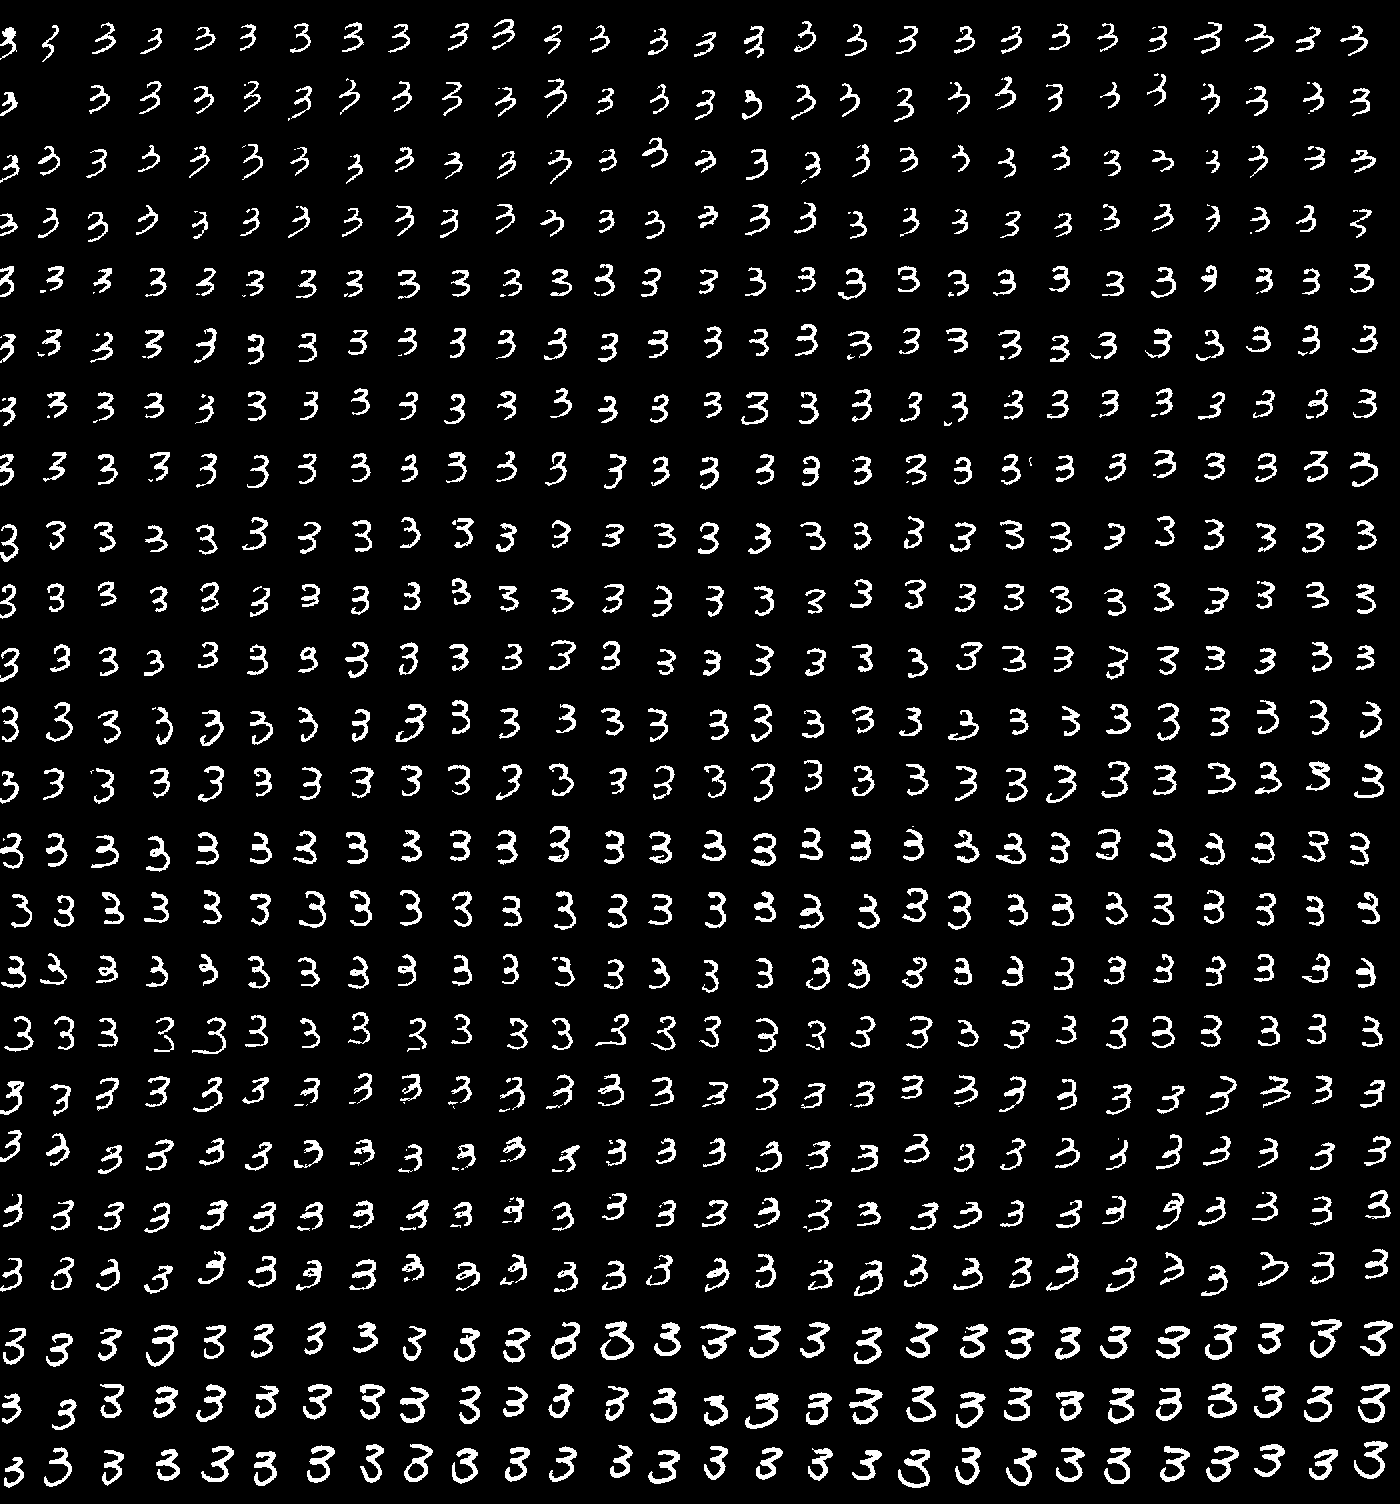 3 3 3 3 3 3 3 3 3 3 3 3 3 3 3 3 3 3 3 3 3 3 3 3 3 3 3 3
3 3 3 3 3 3 3 3 3 3 3 3 3 3 3 3 3 3 3 3 3 3 3 3 3 3 3
3 3 3 3 3 3 3 3 3 3 3 3 3 3 3 3 3 3 3 3 3 3 3 3 3 3 3 3
3 3 3 3 3 3 3 3 3 3 3 3 3 3 3 3 3 3 3 3 3 3 3 3 3 3 3 3
3 3 3 3 3 3 3 3 3 3 3 3 3 3 3 3 3 3 3 3 3 3 3 3 3 3 3 3
3 3 3 3 3 3 3 3 3 3 3 3 3 3 3 3 3 3 3 3 3 3 3 3 3 3 3 3
3 3 3 3 3 3 3 3 3 3 3 3 3 3 3 3 3 3 3 3 3 3 3 3 3 3 3 3
3 3 3 3 3 3 3 3 3 3 3 3 3 3 3 3 3 3 3 3 3 3 3 3 3 3 3 3
3 3 3 3 3 3 3 3 3 3 3 3 3 3 3 3 3 3 3 3 3 3 3 3 3 3 3 3
3 3 3 3 3 3 3 3 3 3 3 3 3 3 3 3 3 3 3 3 3 3 3 3 3 3 3 3
3 3 3 3 3 3 3 3 3 3 3 3 3 3 3 3 3 3 3 3 3 3 3 3 3 3 3 3
3 3 3 3 3 3 3 3 3 3 3 3 3 3 3 3 3 3 3 3 3 3 3 3 3 3 3 3
3 3 3 3 3 3 3 3 3 3 3 3 3 3 3 3 3 3 3 3 3 3 3 3 3 3 3 3
3 3 3 3 3 3 3 3 3 3 3 3 3 3 3 3 3 3 3 3 3 3 3 3 3 3 3 3
3 3 3 3 3 3 3 3 3 3 3 3 3 3 3 3 3 3 3 3 3 3 3 3 3 3 3 3
3 3 3 3 3 3 3 3 3 3 3 3 3 3 3 3 3 3 3 3 3 3 3 3 3 3 3 3
3 3 3 3 3 3 3 3 3 3 3 3 3 3 3 3 3 3 3 3 3 3 3 3 3 3 3 3
3 3 3 3 3 3 3 3 3 3 3 3 3 3 3 3 3 3 3 3 3 3 3 3 3 3 3 3
3 3 3 3 3 3 3 3 3 3 3 3 3 3 3 3 3 3 3 3 3 3 3 3 3 3 3 3
3 3 3 3 3 3 3 3 3 3 3 3 3 3 3 3 3 3 3 3 3 3 3 3 3 3 3 3
3 3 3 3 3 3 3 3 3 3 3 3 3 3 3 3 3 3 3 3 3 3 3 3 3 3 3 3
3 3 3 3 3 3 3 3 3 3 3 3 3 3 3 3 3 3 3 3 3 3 3 3 3 3 3 3
3 3 3 3 3 3 3 3 3 3 3 3 3 3 3 3 3 3 3 3 3 3 3 3 3 3 3 3
3 3 3 3 3 3 3 3 3 3 3 3 3 3 3 3 3 3 3 3 3 3 3 3 3 3 3 3